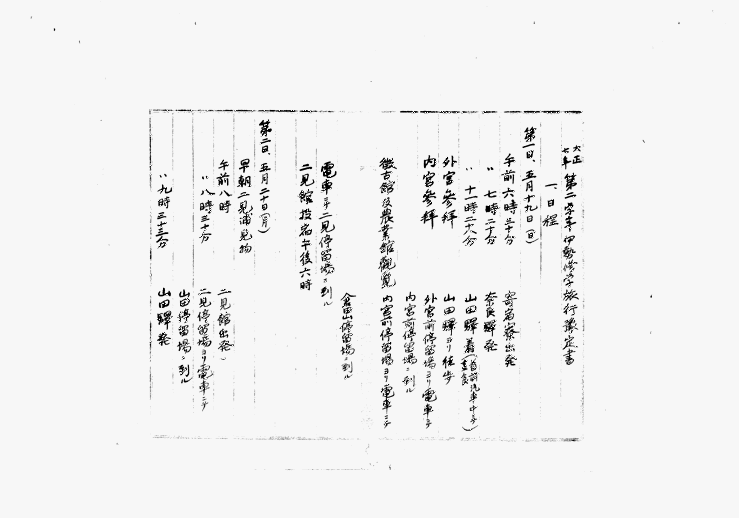 大正七年 第二学年伊勢修学旅行豫定書
一、日程
第一日、五月十九日(日)
午前六時三十分 寄宿寮出発
〃 七時二十分 奈良驛発
〃 十時二十八分 山田驛着(着前汽車中ニテ昼食)
外宮参拝 山田驛ヨリ徒歩
内宮参拝 外宮前停留場ヨリ電車ニテ
内宮前停留場ニ到ル
徴古館及農業館観覧 内宮前停留場ヨリ電車ニテ
倉田山停留場ニ到ル
電車ニテ二見停留場ニ到ル
二見館投宿午後六時
第二日、五月二十日(月)
早朝二見浦見物
午前八時 二見館出発
〃 八時三十分 二見停留場ヨリ電車ニテ
山田停留場ニ到ル
〃 九時三十三分 山田驛発